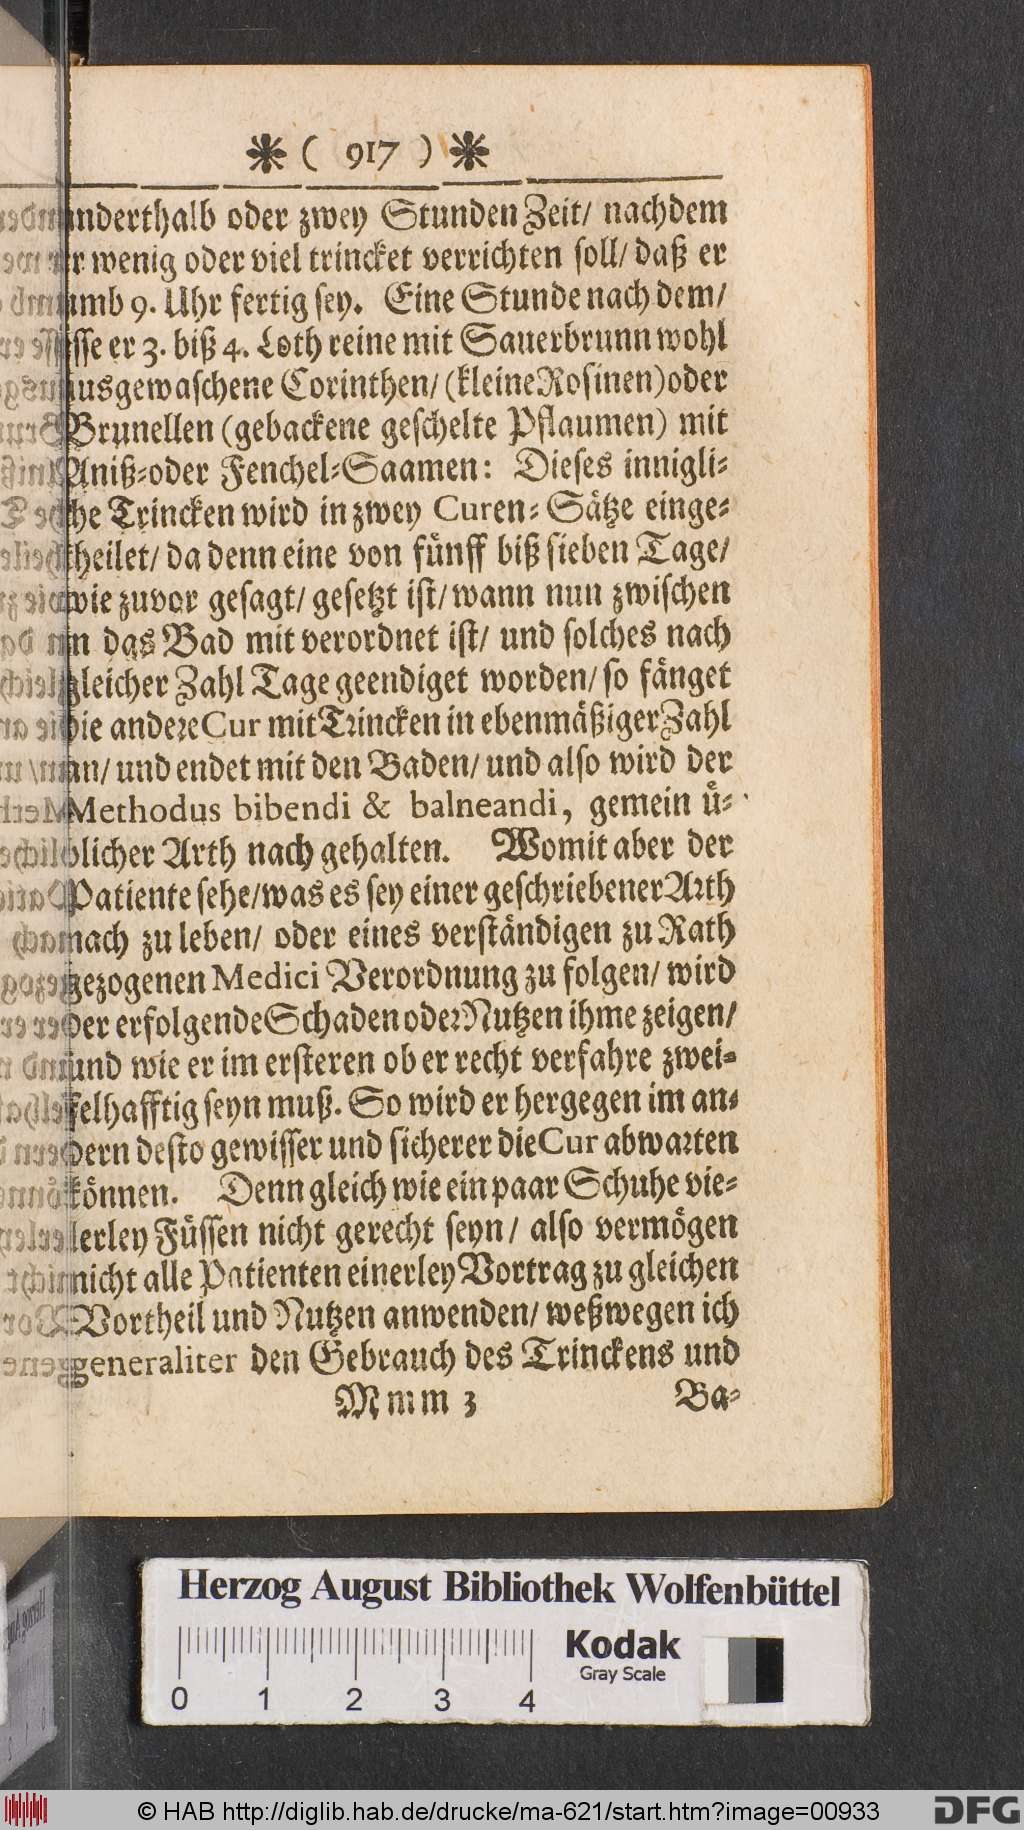 ❋ ( 917 ) ❋
anderthalb oder zwey Stunden Zeit/ nachdem
er wenig oder viel trincket verrichten soll/ daß er
umb 9. Uhr fertig sey. Eine Stunde nach dem/
esse er 3. biß 4. Loth reine mit Sauerbrunn wohl
ausgewaschene Corinthen/ (kleine Rosinen) oder
Brunellen (gebackene geschelte Pflaumen) mit
Aniß-oder Fenchel-Saamen: Dieses innigli-
che Trincken wird in zwey Curen-Sätze einge-
theilet/ da denn eine von fünff biß sieben Tage/
wie zuvor gesagt/ gesetzt ist/ wann nun zwischen
in das Bad mit verordnet ist/ und solches nach
gleicher Zahl Tage geendiget worden/ so fänget
die andere Cur mit Trincken in ebenmäßiger Zahl
an/ und endet mit den Baden/ und also wird der
Methodus bibendi & balneandi, gemein ü-
blicher Arth nach gehalten. Womit aber der
Patiente sehe/ was es sey einer geschriebener Arth
nach zu leben/ oder eines verständigen zu Rath
gezogenen Medici Verordnung zu folgen/ wird
der erfolgende Schaden oder Nutzen ihme zeigen/
und wie er im ersteren ob er recht verfahre zwei-
felhafftig seyn muß. So wird er hergegen im an-
dern desto gewisser und sicherer die Cur abwarten
können. Denn gleich wie ein paar Schuhe vie-
lerley Füssen nicht gerecht seyn/ also vermögen
nicht alle Patienten einerley Vortrag zu gleichen
Vortheil und Nutzen anwenden/ weßwegen ich
generaliter den Gebrauch des Trinckens und
Mmm 3 Ba-
Herzog August Bibliothek Wolfenbüttel
Kodak
Gray Scale
0 1 2 3 4
© HAB http://diglib.hab.de/drucke/ma-621/start.htm?image=00933
DFG